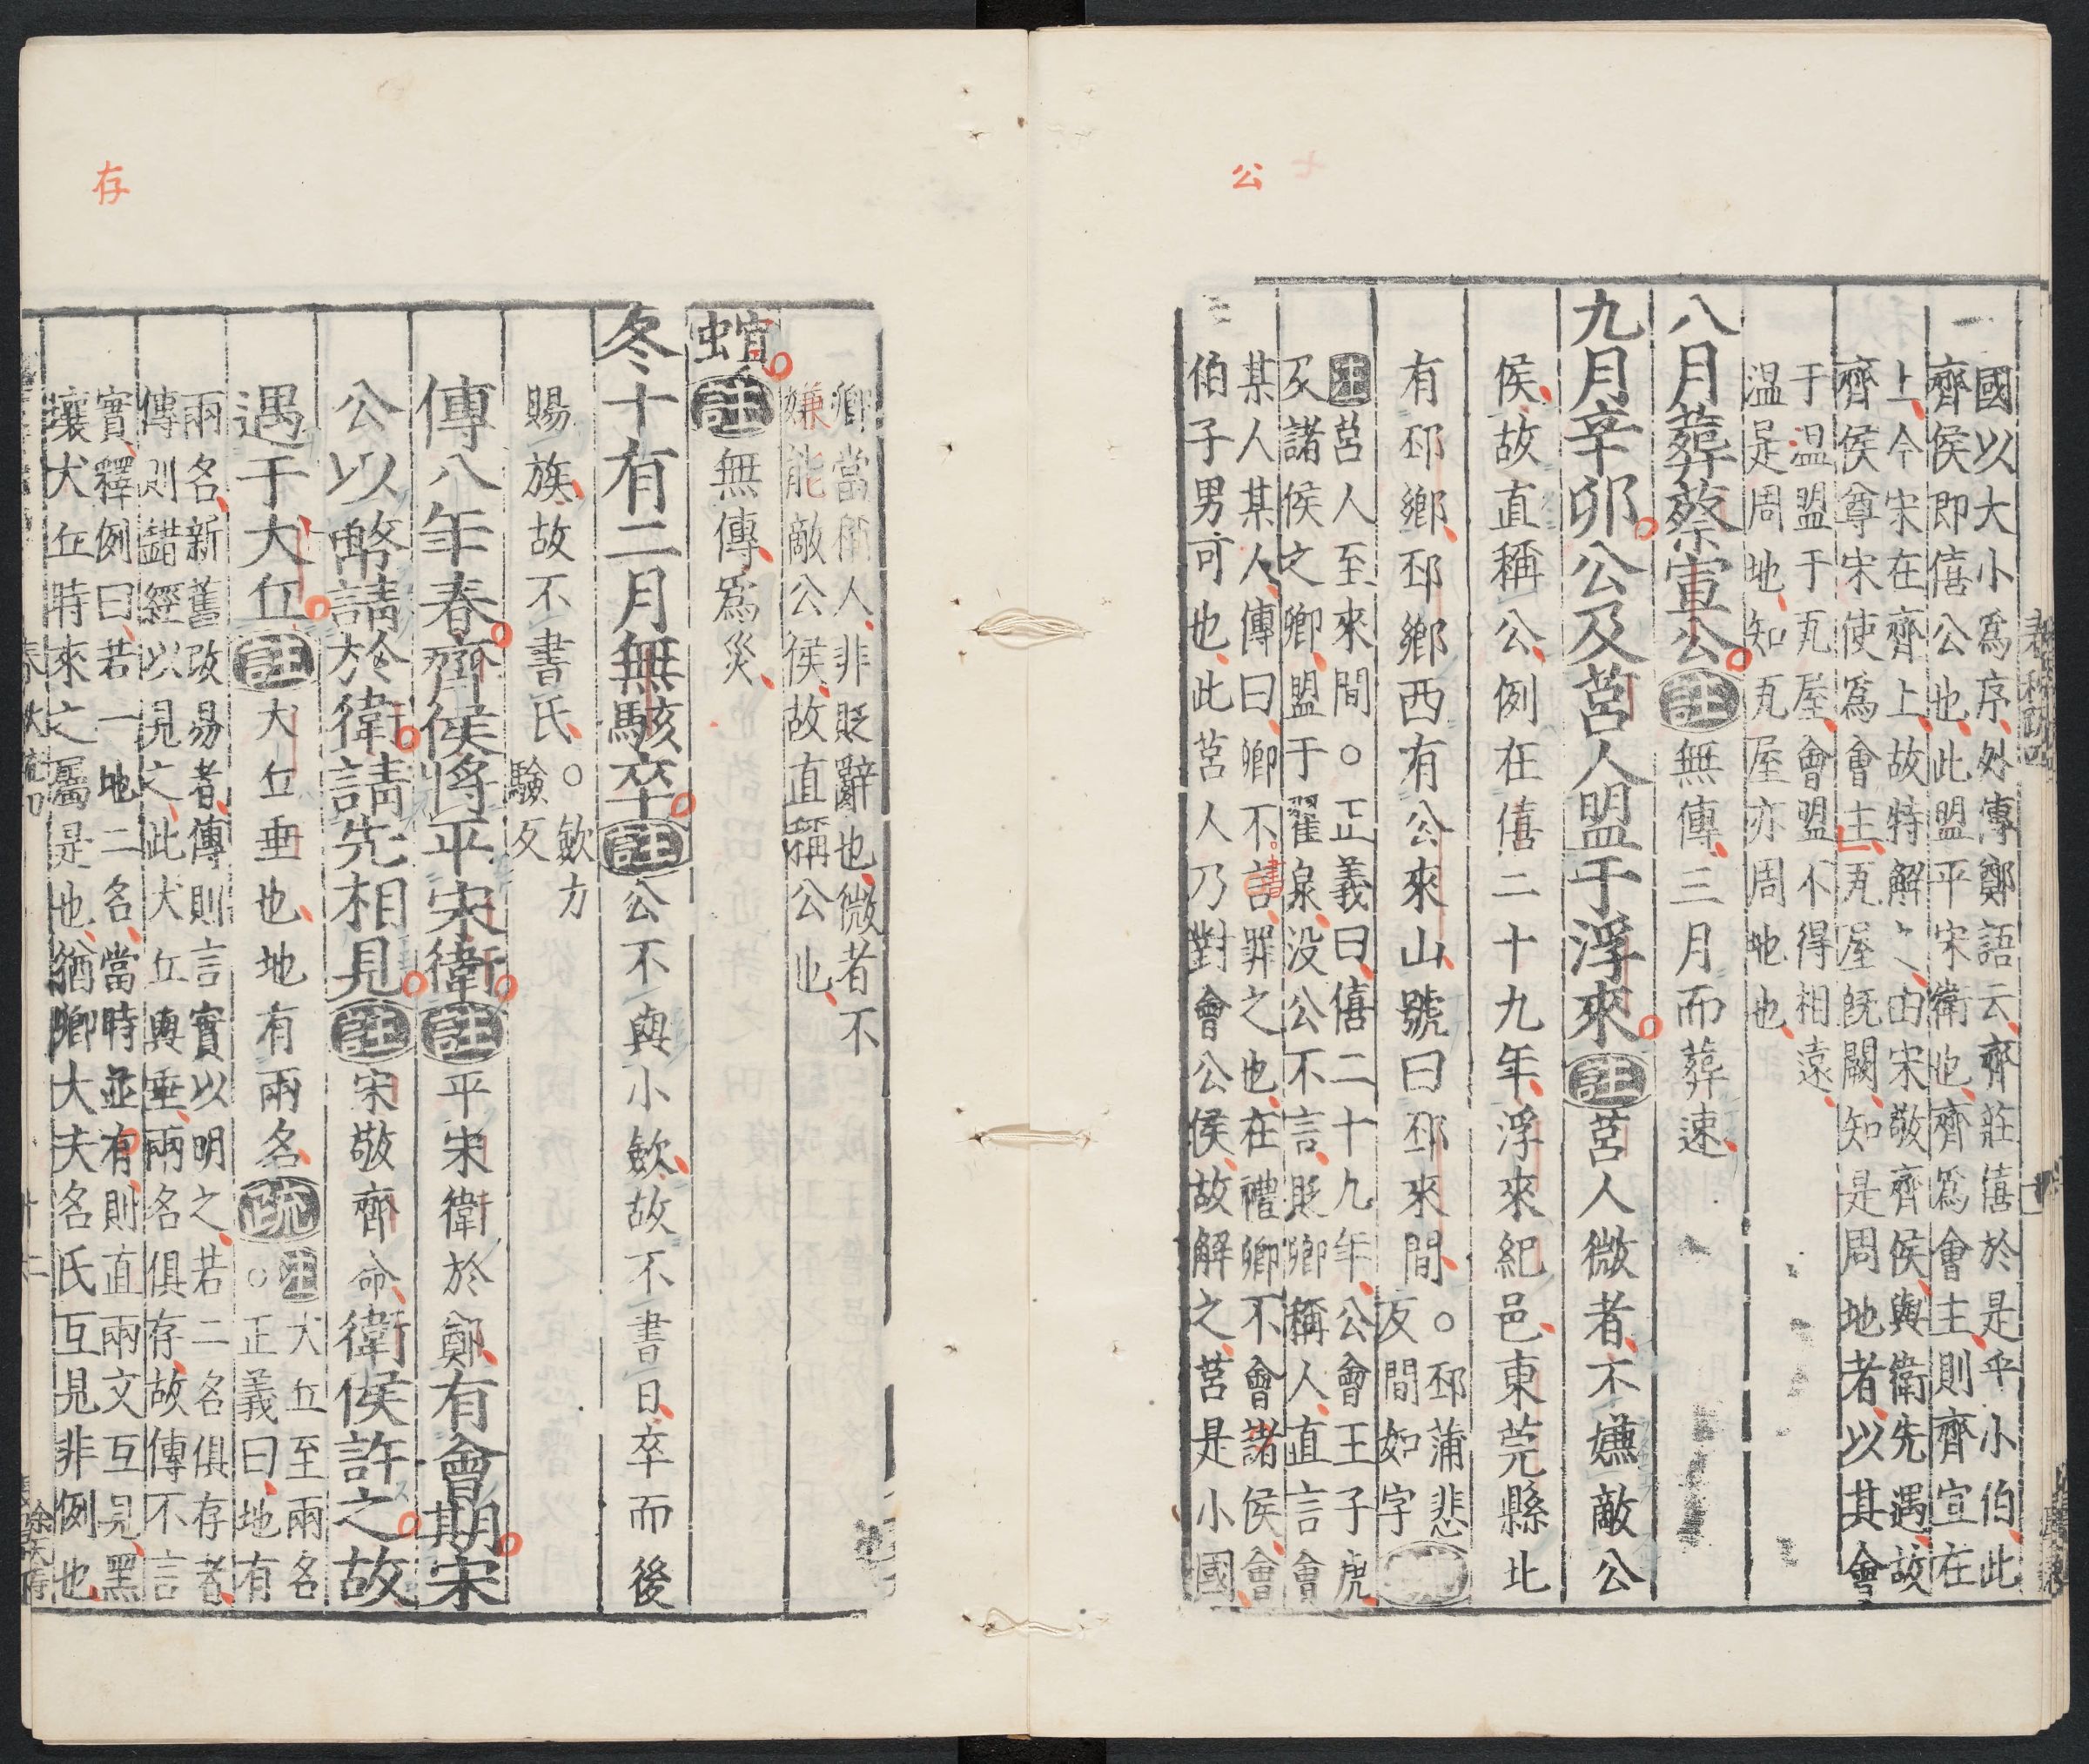 公
國以大小爲序外傳鄭語云齊莊僖於是乎小伯此
齊侯即僖公也此盟平宋衛也齊爲會主則齊宣在
上今宋在齊上故特解之由宋敬齊侯與衛先遇故
齊侯尊宋使爲會主瓦屋旣闕知是周地者以其會
于温盟于瓦屋會盟不得相遠
温是周地知瓦屋亦周地也
八月葬蔡宣公註無傳三月而葬速
九月辛卯公及莒人盟于浮來註莒人微者不嫌敵公
侯故直稱公例在僖二十九年浮來紀邑東莞縣北
有邳鄉邳鄉西有公來山號曰邳來間○邳蒲悲
反間如字
注莒人至來間○正義曰僖二十九年公會王子虎
及諸侯之卿盟于翟泉没公不言貶卿稱人直言會
某人某人傳曰卿不言書罪之也在禮卿不會諸侯會
伯子男可也此莒人乃對會公侯故解之莒是小國
存
卿當稱人非貶辭也微者不
嫌能敵公侯故直稱公也
螟註無傳爲災
冬十有二月無駭卒註公不與小斂故不書日卒而後
賜族故不書氏○斂力
驗反
傳八年春齊侯將平宋衛註平宋衛於鄭有會期宋
公以幣請於衛請先相見註宋敬齊命衛侯許之故
遇于犬丘註犬丘垂也地有兩名疏注犬丘至兩名
○正義曰地有
兩名新舊改易者傳則言實以明之若二名俱存者
傳則錯經以見之此犬丘與垂兩名俱存故傳不言
實釋例曰若一地二名當時並有則直兩文互見黑
壤犬丘時來之屬是也猶卿大夫名氏互見非例也